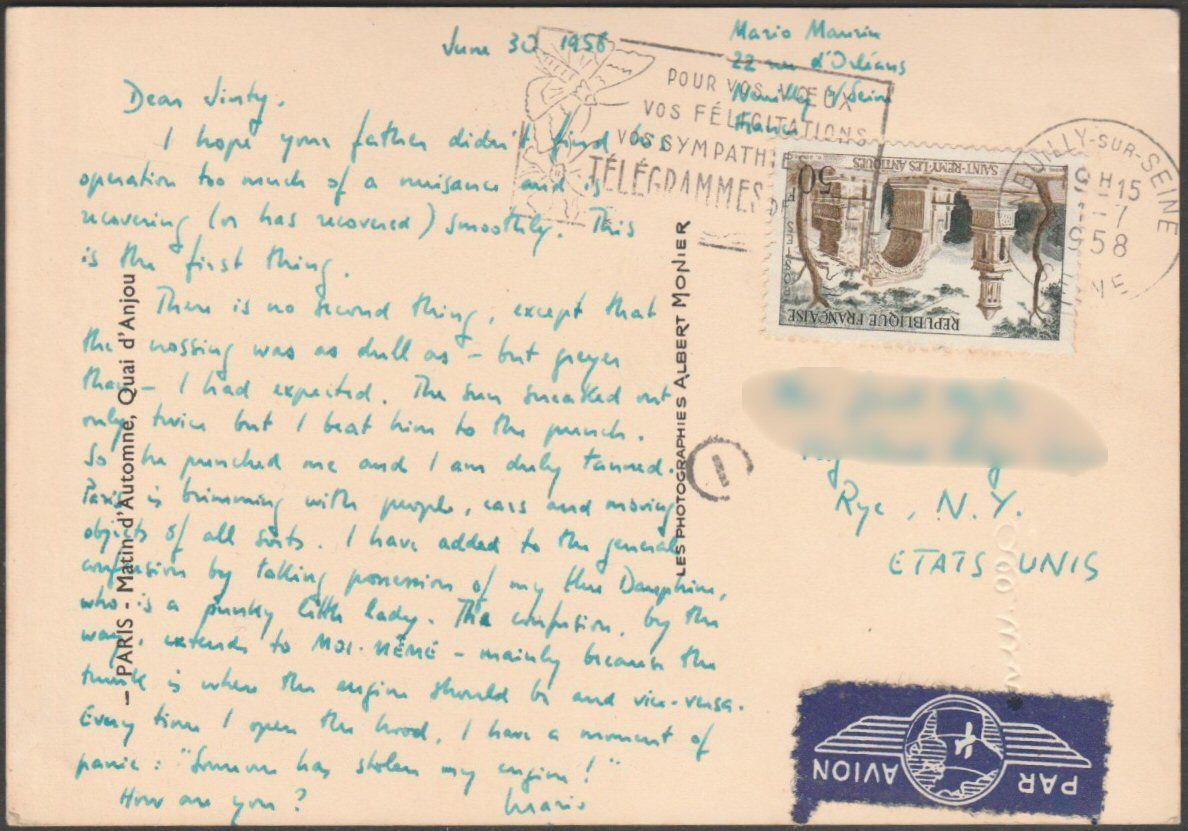 June 30 1958
Mario Maurin
22 rue d'Orléans
Neuilly s/Seine
France
Dear Jinty,
I hope your father didn't find his
operation too much of a nuisance and is
recovering (or has recovered) smoothly. This
is the first thing.
There is no second thing, except that
the crossing was as dull as – but greyer
than – I had expected. The sun sneaked out
only twice but I beat him to the punch.
So he punched me and I am duly tanned.
Paris is brimming with people, cars and moving
objects of all sorts. I have added to the general
confusion by taking possession of my blue Dauphine,
who is a punky little lady. The confusion, by the
way, extends to MOI-MÊME – mainly because the
trunk is where the engine should be and vice-versa.
Every time I open the hood, I have a moment of
panic: "Someone has stolen my engine!"
How are you?
Mario
POUR VOS VŒUX
VOS FÉLICITATIONS
VOS SYMPATHIE
TÉLÉGRAMMES DE
NEUILLY-SUR-SEINE
9H15
1-7
1958
SEINE
SAINT-REMY-LES ANTIQUES
50F
POSTES
REPUBLIQUE FRANÇAISE
Rye, N.Y.
ETATS UNIS
PAR AVION
– PARIS - Matin d'Automne, Quai d'Anjou
LES PHOTOGRAPHIES ALBERT MONIER
1